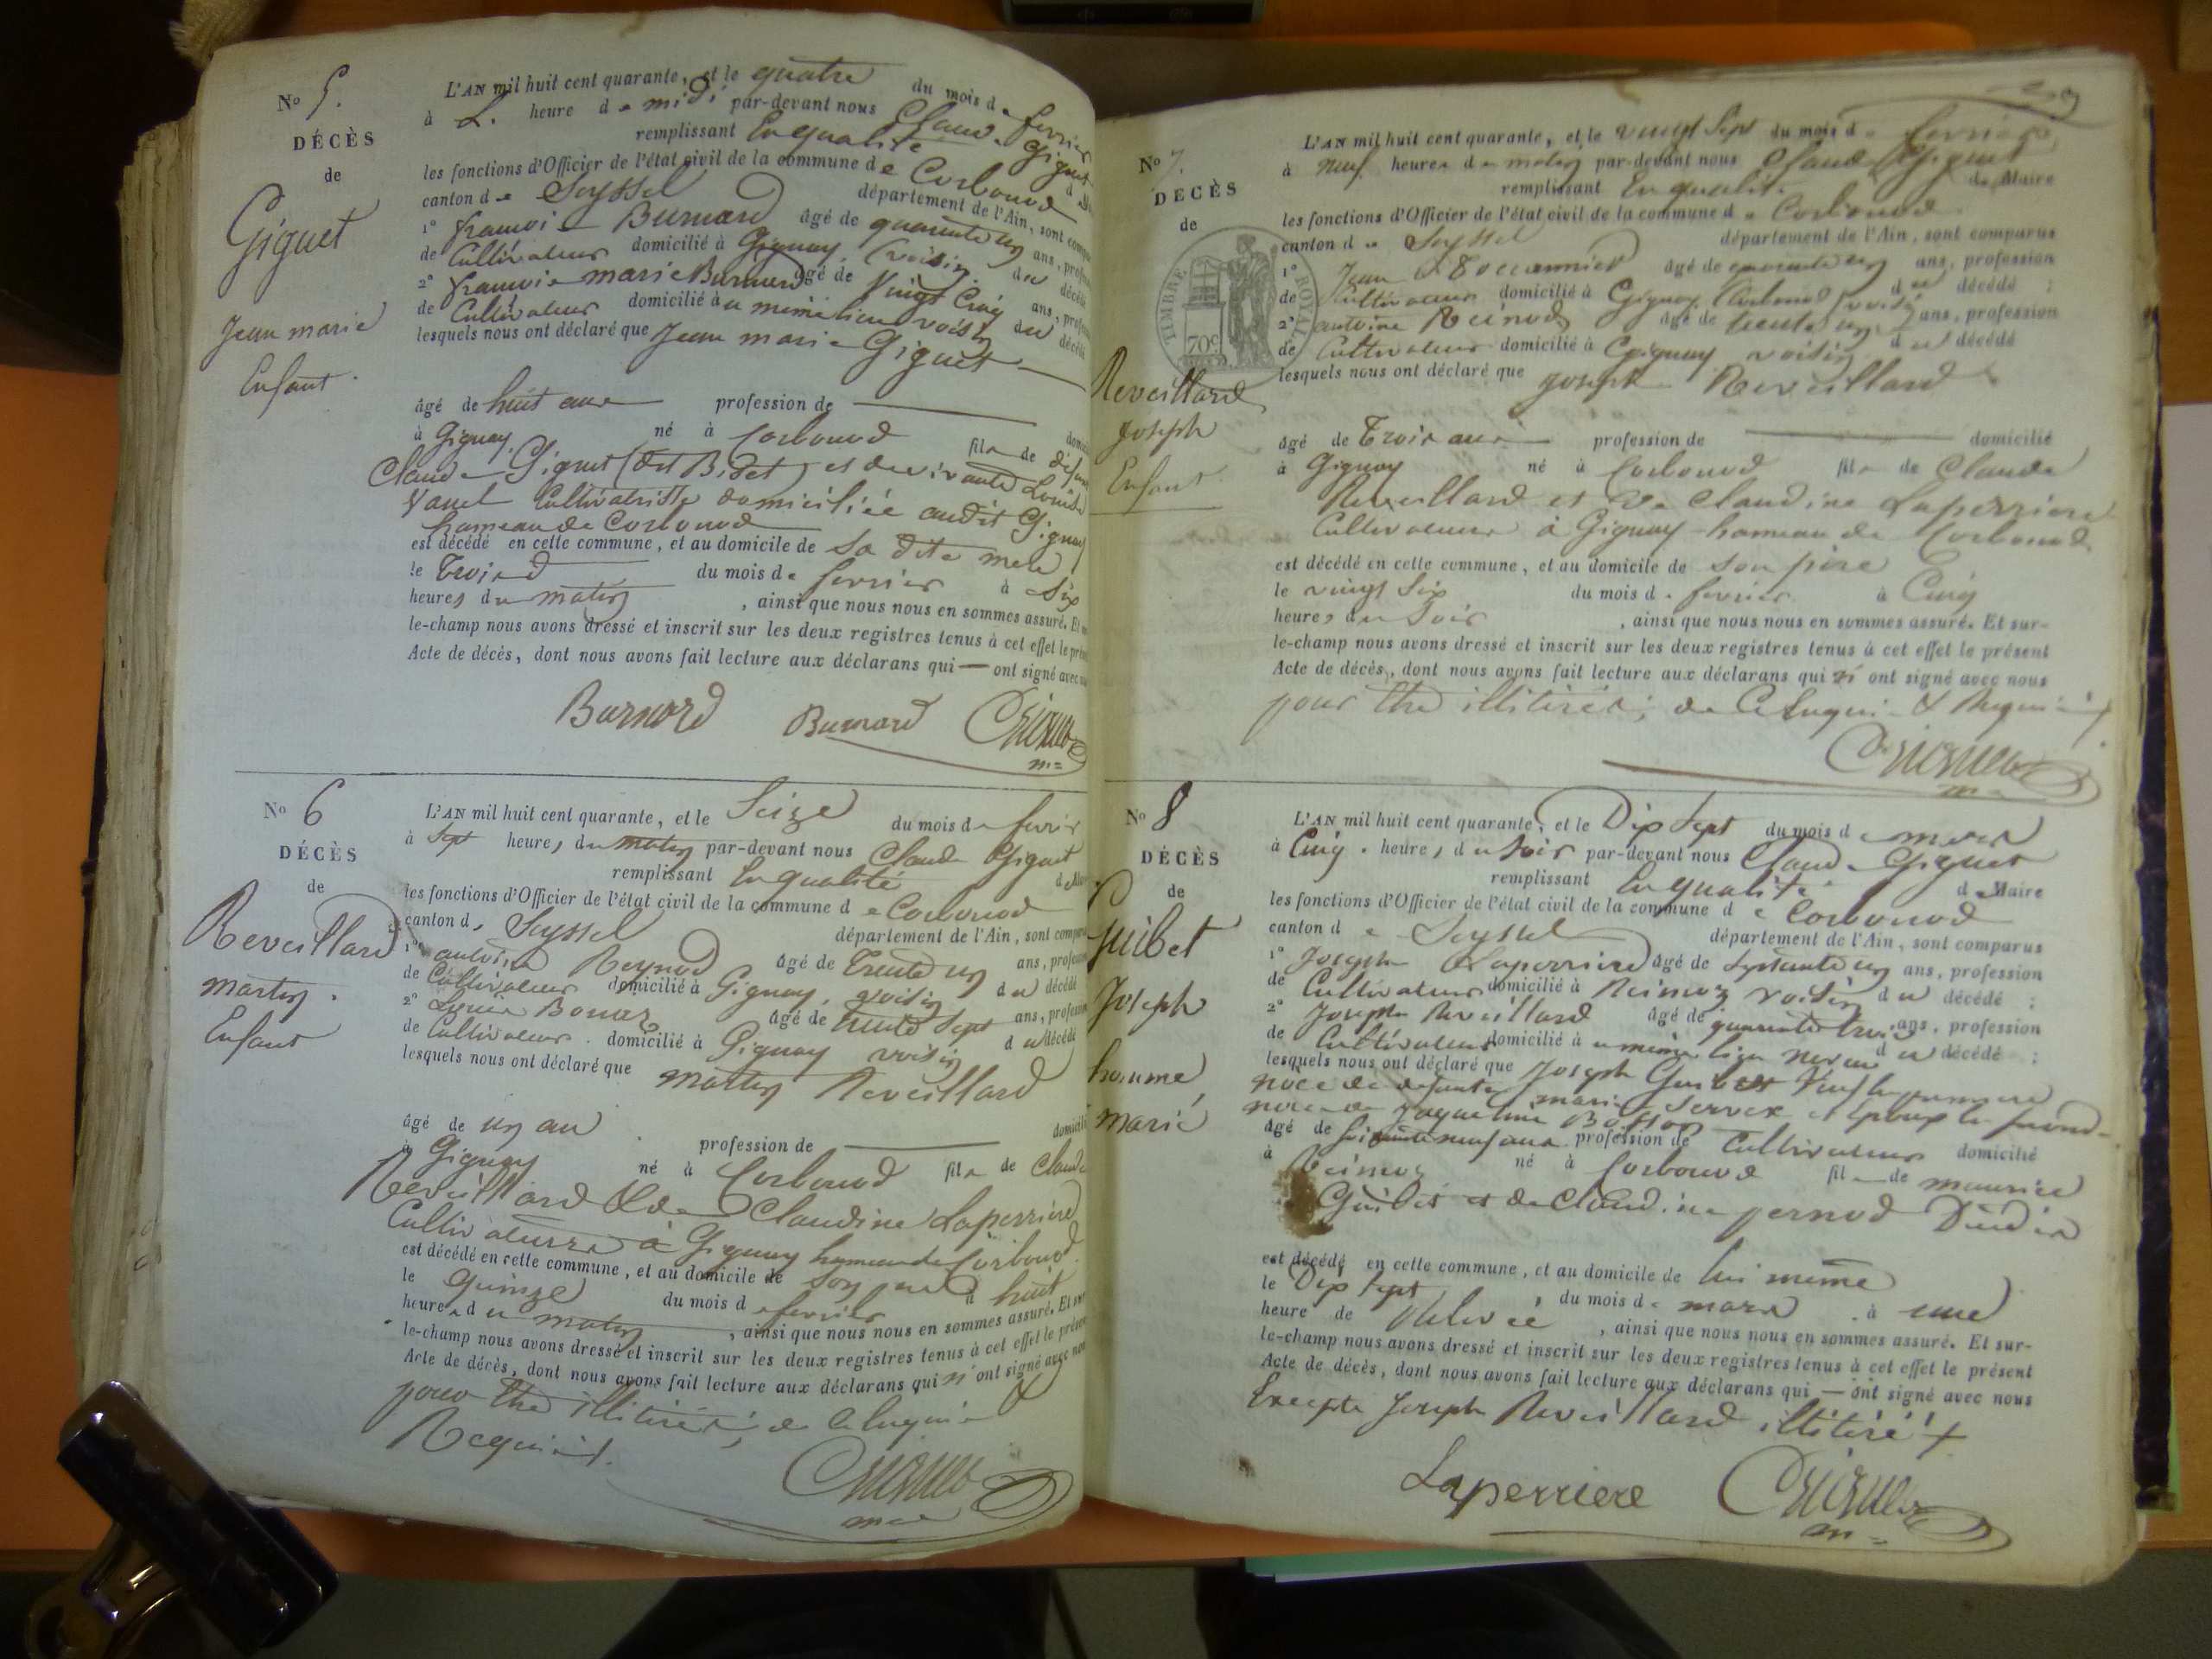 No 5.
DÉCÈS
de
Giguet
Jean marie
Enfant.
L'AN mil huit cent quarante, et le quatre du mois de fevrier
à heure de midi par-devant nous Claude Giguet
remplissant En qualité
les fonctions d'Officier de l'état civil de la commune de Corbonod
canton de Seyssel département de l'Ain, sont
1° françois Burnard âgé de quarante un ans,
de Cultivateur domicilié à Gignay, voisin du
2° françois marie Burnard âgé de Vingt Cinq ans,
de Cultivateur domicilié au même lieu voisin du
lesquels nous ont déclaré que Jean marie Giguet
âgé de huit ans profession de
à Gignay né à Corbonod fils de
Claude Giguet (dit Bidet) et de vivante Louise
Vanel Cultivatrisse domiciliée audit Gignay
hameau de Corbonod
est décédé en cette commune, et au domicile de Sa dite mere
le Trois du mois de fevrier à Six
heures du matin, ainsi que nous nous en sommes assuré.
le-champ nous avons dressé et inscrit sur les deux registres tenus à cet effet le
Acte de décès, dont nous avons fait lecture aux déclarans qui — ont signé avec
Burnard Burnard Giguet
No 6
DÉCÈS
de
Reveillard
martin.
Enfant
L'AN mil huit cent quarante, et le Seize du mois de
à Sept heures du matin par-devant nous Claude Giguet
remplissant En qualité
les fonctions d'Officier de l'état civil de la commune de Corbonod
canton de Seyssel département de l'Ain, sont
1° antoine Reynod âgé de Trente un ans,
de Cultivateur domicilié à Gignay, voisin du décédé
2° Louis Bonaz âgé de trente Sept ans,
de Cultivateur domicilié à Gignay voisin du décédé
lesquels nous ont déclaré que martin Reveillard
âgé de un an profession de
à Gignay né à Corbonod fils de Claude
Reveillard & de Claudine Laperriere
Cultivateurs à Gignay hameau de Corbonod
est décédé en cette commune, et au domicile de son pere
le quinze du mois de fevrier à huit
heures du matin, ainsi que nous nous en sommes assuré.
le-champ nous avons dressé et inscrit sur les deux registres tenus à cet effet le
Acte de décès, dont nous avons fait lecture aux déclarans qui n'ont signé avec
pour être illitirés; de ce Enquis &
Requis.
Giguet
No 7.
DÉCÈS
de
TIMBRE ROYAL
70c
Reveillard
Joseph
Enfant
L'AN mil huit cent quarante, et le vingt Sept du mois de fevrier
à neuf heures du matin par-devant nous Claude Giguet
remplissant En qualité de Maire
les fonctions d'Officier de l'état civil de la commune de Corbonod
canton de Seyssel département de l'Ain, sont comparus
1° Jean âgé de quarante un ans, profession
de Cultivateur domicilié à Gignay, Corbonod voisin du décédé;
2° antoine Reinod âgé de trente un ans, profession
de Cultivateur domicilié à Gignay voisin du décédé
lesquels nous ont déclaré que joseph Reveillard
âgé de Trois ans profession de domicilié
à Gignay né à Corbonod fils de Claude
Reveillard et de Claudine Laperriere
Cultivateurs à Gignay hameau de Corbonod
est décédé en cette commune, et au domicile de son père
le vingt Six du mois de fevrier à Cinq
heures du Soir, ainsi que nous nous en sommes assuré. Et sur-
le-champ nous avons dressé et inscrit sur les deux registres tenus à cet effet le présent
Acte de décès, dont nous avons fait lecture aux déclarans qui n'ont signé avec nous
pour être illitirés; de ce Enquis & Requis
Giguet
No 8
DÉCÈS
de
Guibet
Joseph
homme
marié
L'AN mil huit cent quarante, et le Dix Sept du mois de mars
à Cinq heures du Soir par-devant nous Claude Giguet
remplissant En qualité de Maire
les fonctions d'Officier de l'état civil de la commune de Corbonod
canton de Seyssel département de l'Ain, sont comparus
1° Joseph Laperriere âgé de Septante un ans, profession
de Cultivateur domicilié à Reimoz voisin du décédé;
2° Joseph Reveillard âgé de quarante trois ans, profession
de Cultivateur domicilié au même lieu neveu du décédé;
lesquels nous ont déclaré que Joseph Guibet
noce de défunte marie Servex et Epoux En
noce de Jaqueline
âgé de Soixante neuf ans profession de Cultivateur domicilié
à Reimoz né à Corbonod fils de maurice
Guibet et de Claudine pernod
est décédé en cette commune, et au domicile de lui même
le Dix Sept du mois de mars à une
heure de, ainsi que nous nous en sommes assuré. Et sur-
le-champ nous avons dressé et inscrit sur les deux registres tenus à cet effet le présent
Acte de décès, dont nous avons fait lecture aux déclarans qui — ont signé avec nous
Excepté Joseph Reveillard illitiré
Laperriere Giguet